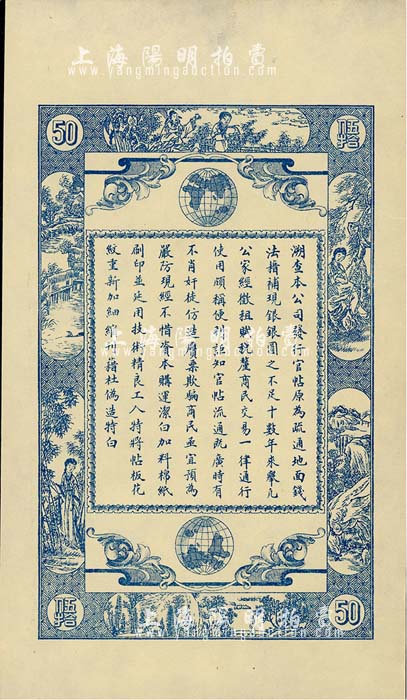 上海陽明拍賣
www.yangmingauction.com
50
伍拾
溯查本公司發行官帖原為疏通地面錢
法藉補現銀銀圓之不足十數年來舉凡
公家經徵租賦抗釐商民交易一律通行
使用頗稱便利詎知官帖流通既廣時有
不肖奸徒仿造膺票欺騙商民亟宜預為
嚴防現經不惜資本購運潔白加料棉紙
刷印並延用技術精良工人特將帖板花
紋重新加細維藉杜偽造特白
上海陽明拍賣
www.yangmingauction.com
伍拾
50
上海陽明拍賣
www.yangmingauction.com